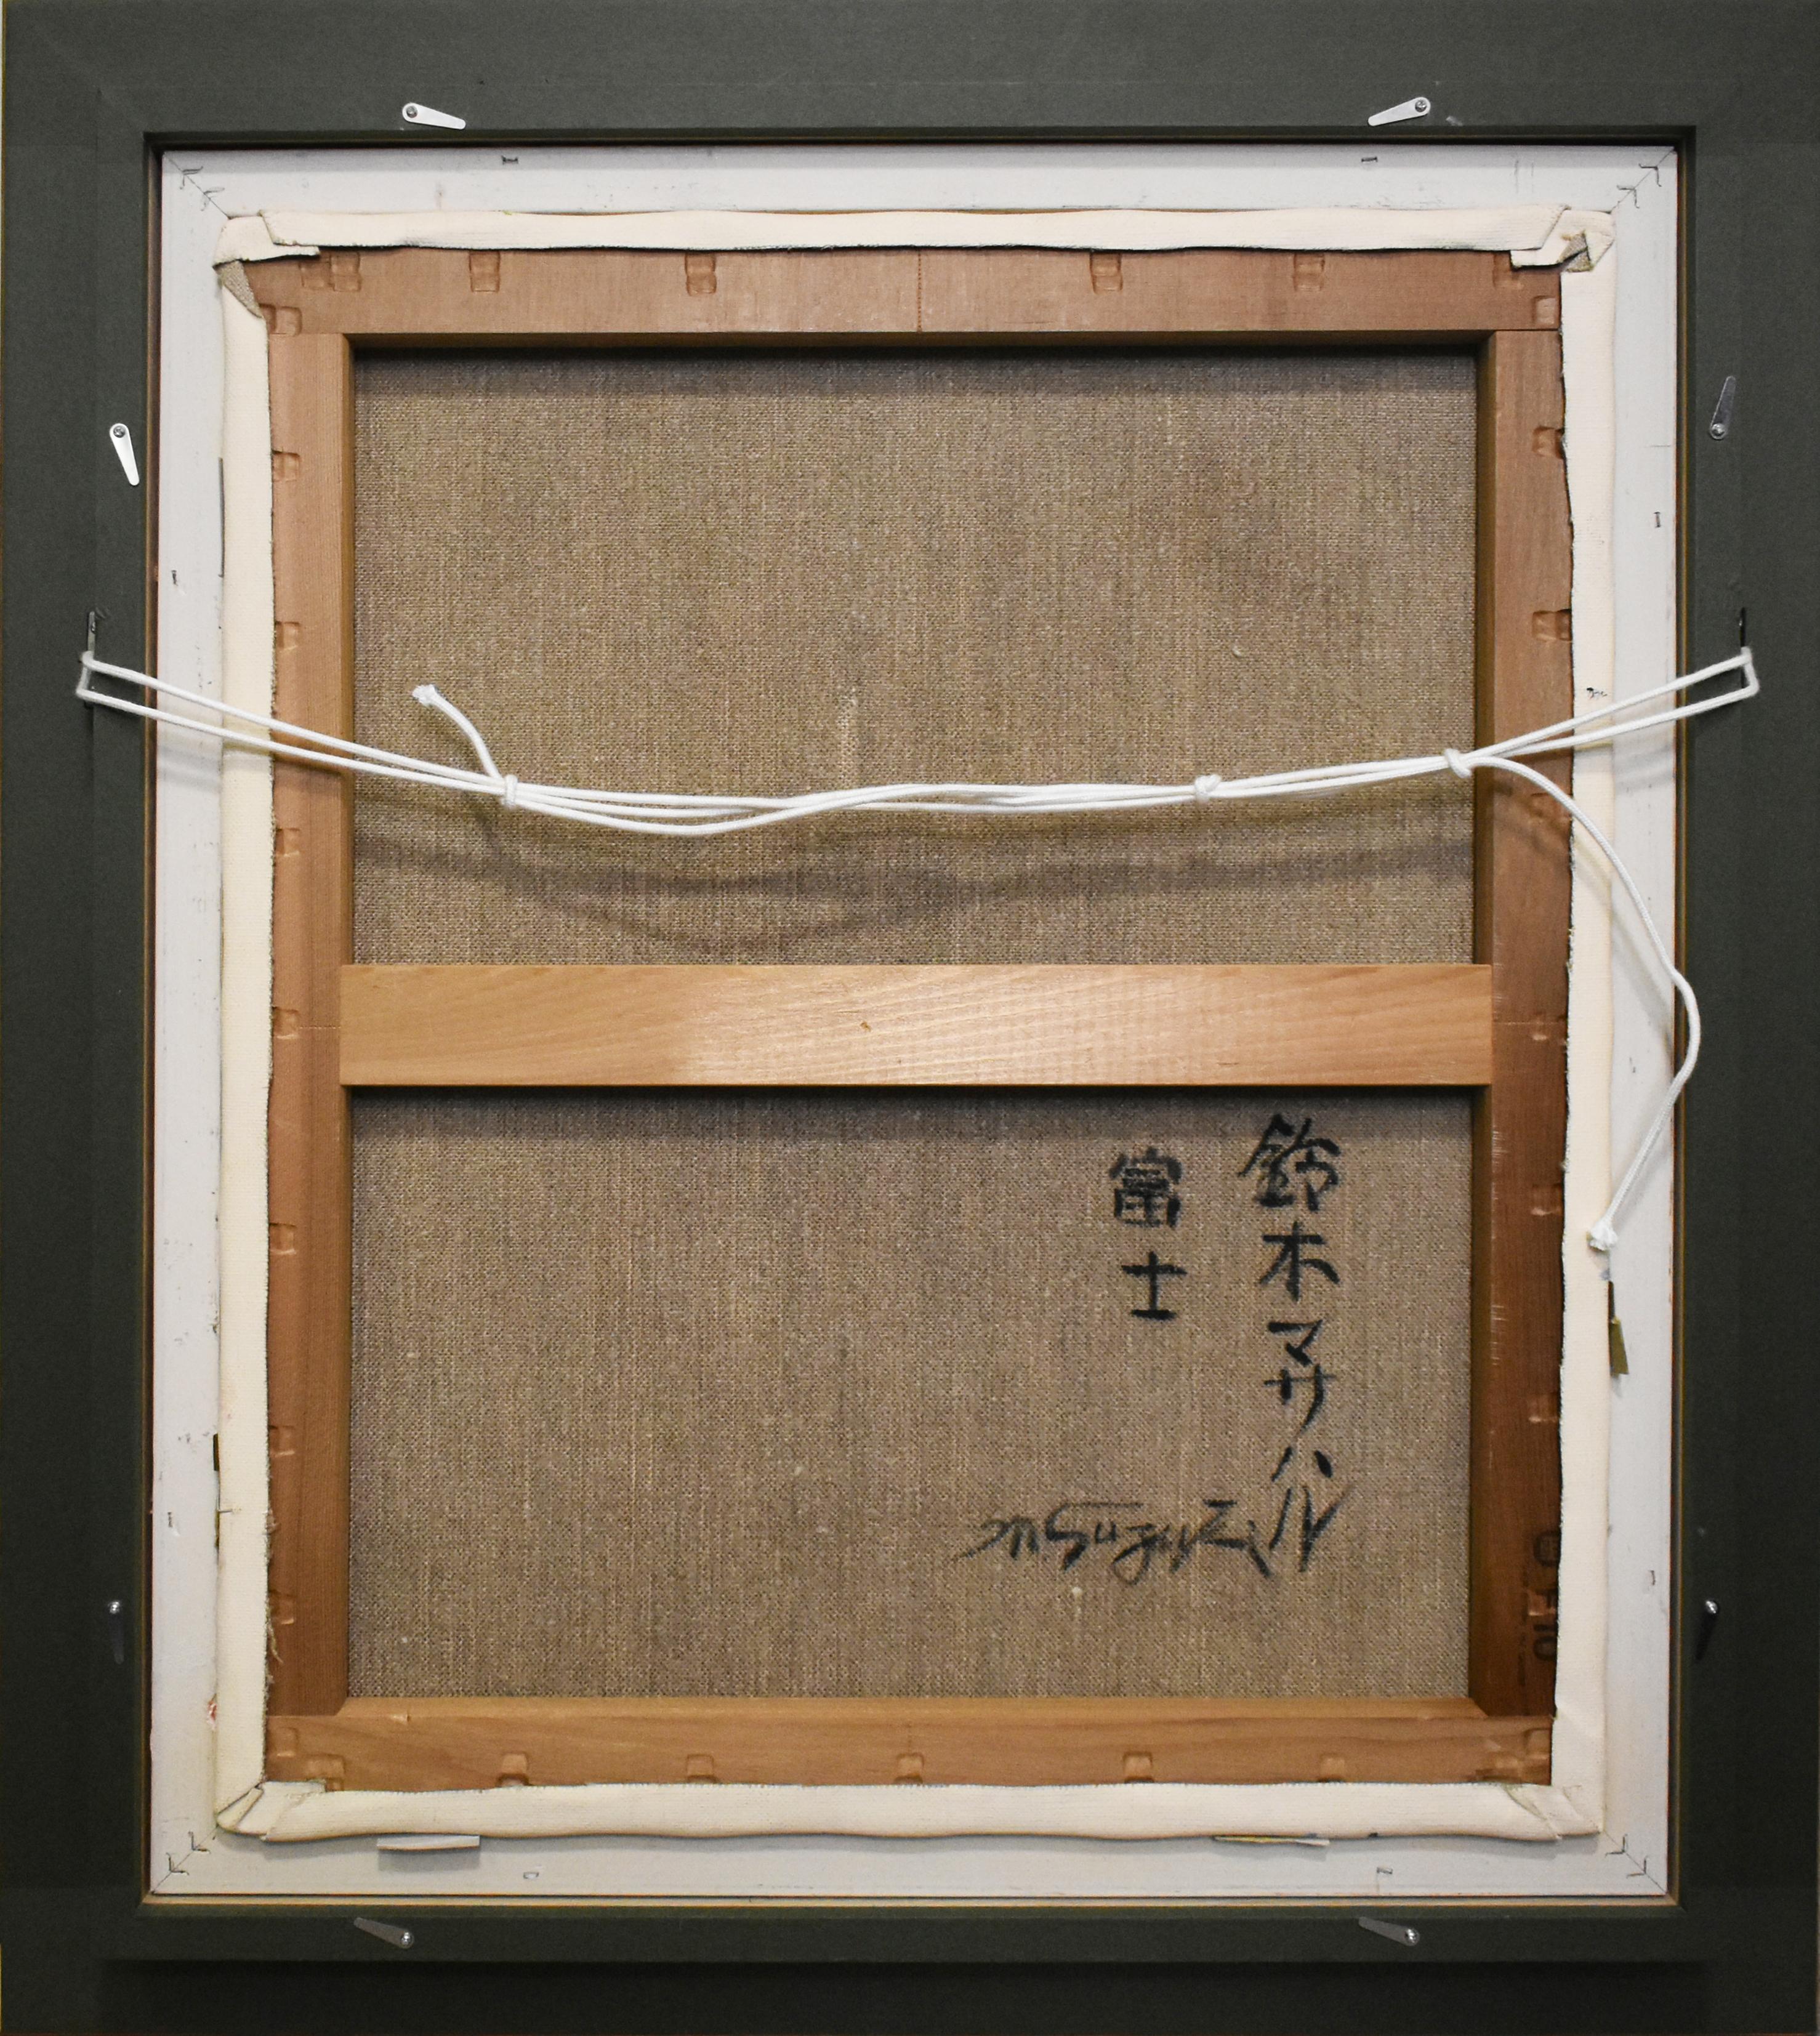 鈴木マサハル
富士
F10